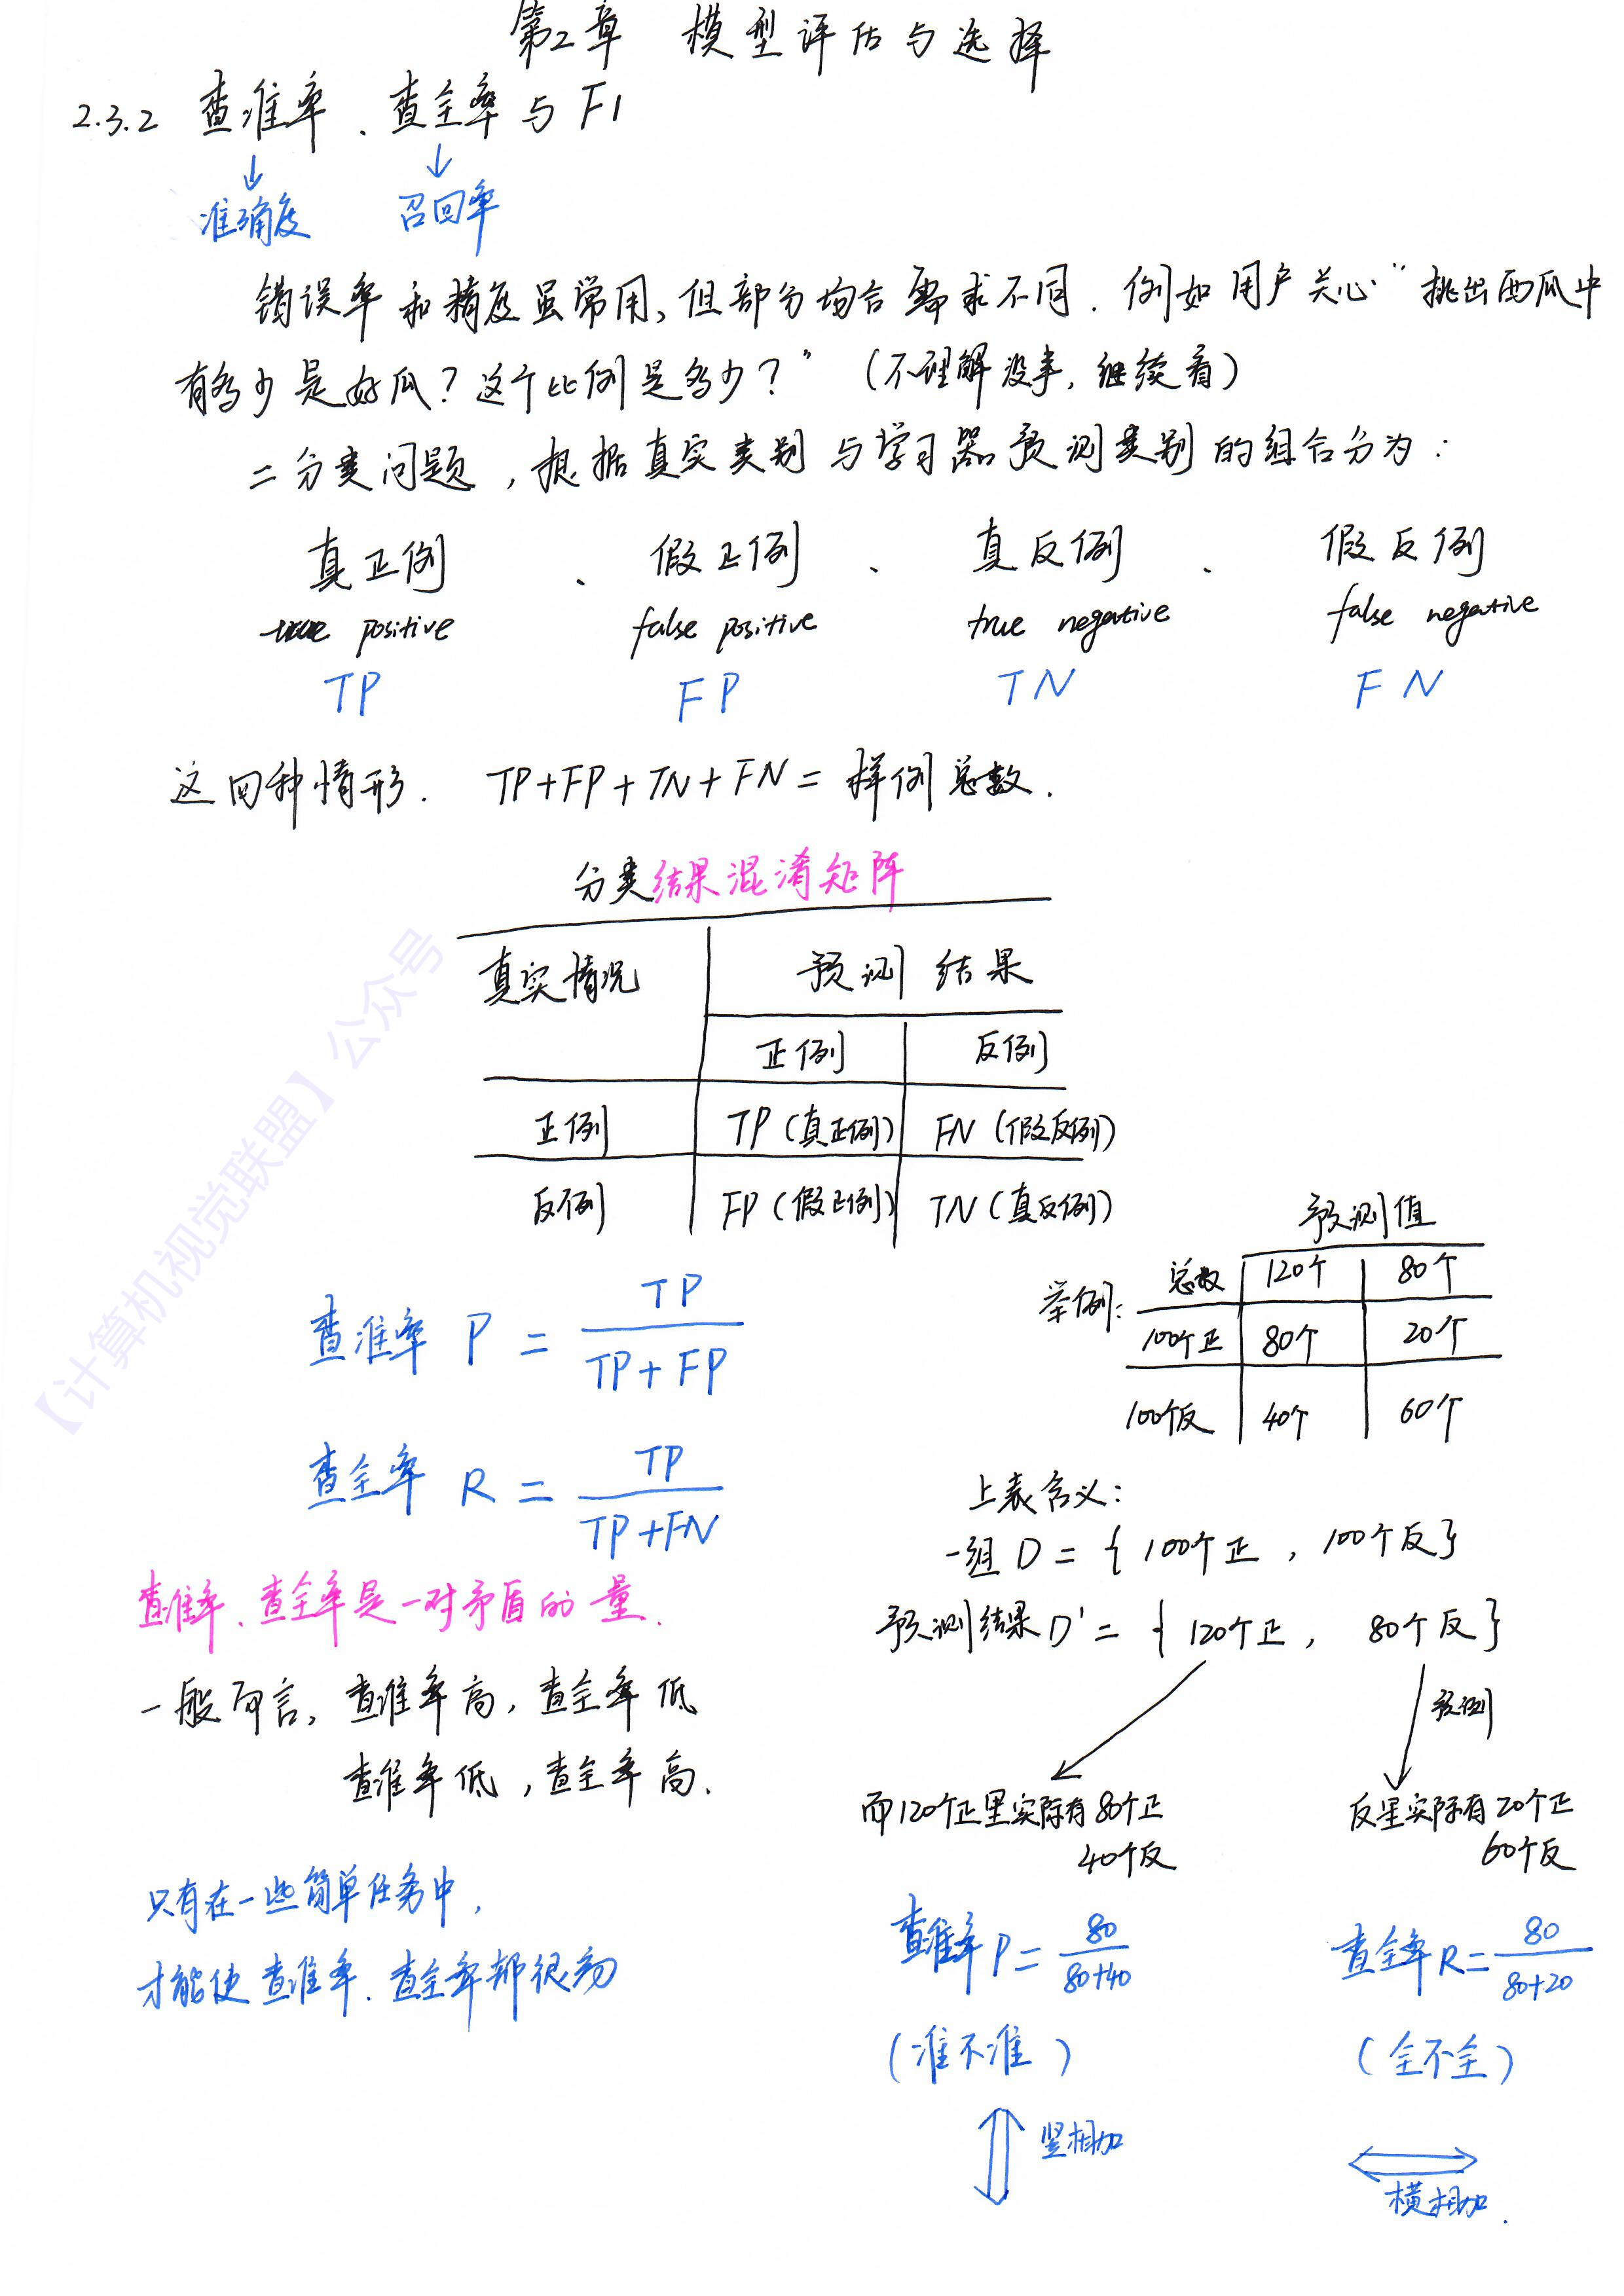 第2章 模型评估与选择
2.3.2 查准率、查全率与F1
↓ ↓
准确度 召回率
错误率和精度虽常用,但部分场合需求不同.例如用户关心“挑出西瓜中
有多少是好瓜?这个比例是多少?”(不理解没事,继续看)
二分类问题,根据真实类别与学习器预测类别的组合分为:
真正例、假正例、真反例、假反例
true positive false positive true negative false negative
TP FP TN FN
这四种情形. TP+FP+TN+FN=样例总数.
分类结果混淆矩阵
真实情况 预测结果
正例 反例
正例 TP(真正例) FN(假反例)
反例 FP(假正例) TN(真反例)
查准率 P = TP / (TP+FP)
查全率 R = TP / (TP+FN)
查准率、查全率是一对矛盾的量.
一般而言,查准率高,查全率低
查准率低,查全率高.
只有在一些简单任务中,
才能使查准率、查全率都很高
预测值
举例: 总数 120个 80个
100个正 80个 20个
100个反 40个 60个
上表含义:
一组D={100个正,100个反}
预测结果D'={120个正,80个反}
预测
而120个正里实际有80个正 反里实际有20个正
40个反 60个反
查准率P=80/(80+40) 查全率R=80/(80+20)
(准不准) (全不全)
竖相加 横相加.
【计算机视觉联盟】公众号